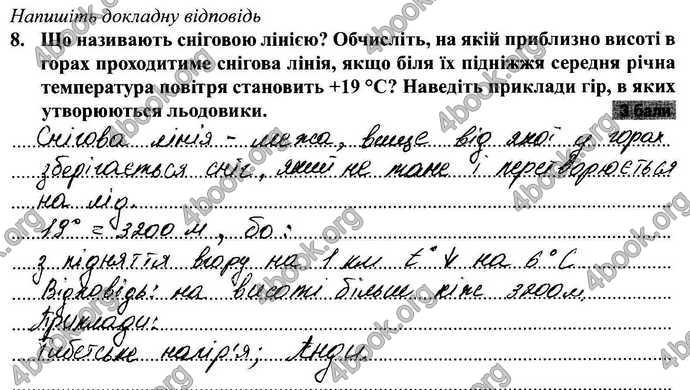 Напишіть докладну відповідь
8. Що називають сніговою лінією? Обчисліть, на якій приблизно висоті в
горах проходитиме снігова лінія, якщо біля їх підніжжя середня річна
температура повітря становить +19 °С? Наведіть приклади гір, в яких
утворюються льодовики.
3 бали
Снігова лінія - межа, вище від якої у горах
зберігається сніг, який не тане і перетворюється
на лід.
19° = 3200 м, бо:
з підняття вгору на 1 км t° ↓ на 6°С
Відповідь: на висоті більш ніж 3200м,
Приклади:
Тибетське нагір'я; Анди.
4book.org